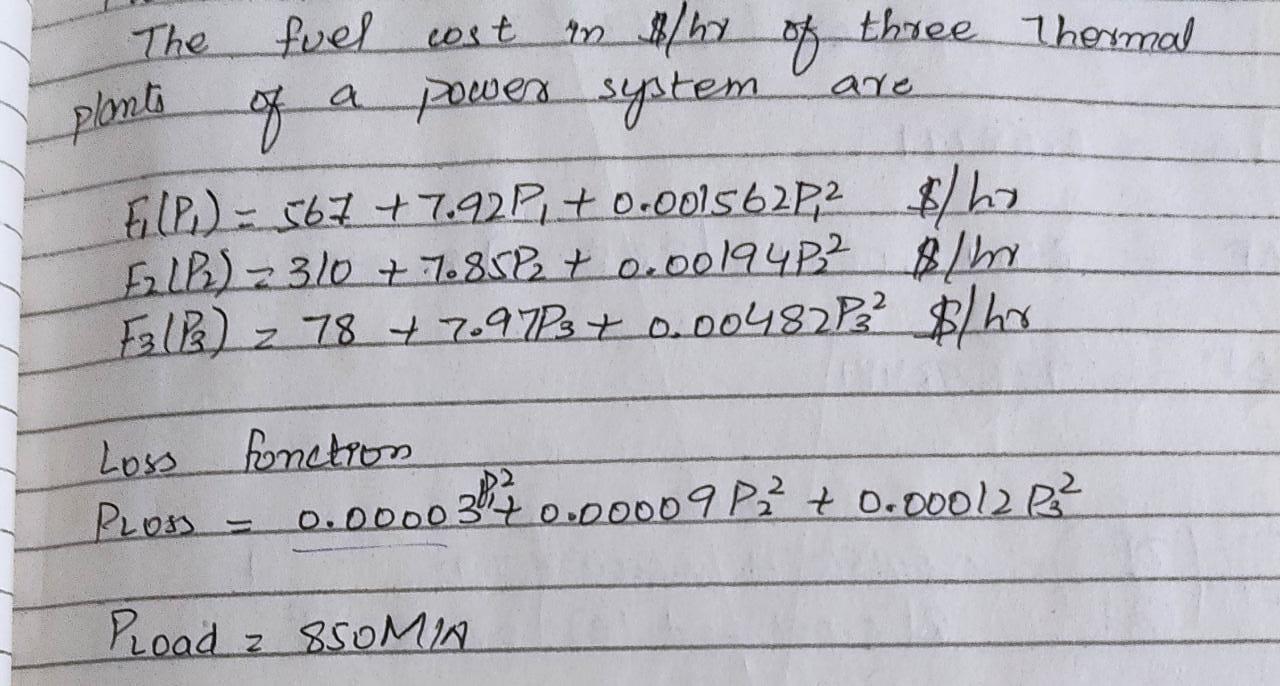 The fuel cost in $/hr of three Thermal
plants of a power system are
F₁(P₁) = 567 + 7.92P₁ + 0.001562P₁² $/hr
F₂(P₂) = 310 + 7.85P₂ + 0.00194P₂² $/hr
F₃(P₃) = 78 + 7.97P₃ + 0.00482P₃² $/hr
Loss fonction
PLoss = 0.00003P₁² + 0.00009P₂² + 0.00012P₃²
PLoad = 850MW